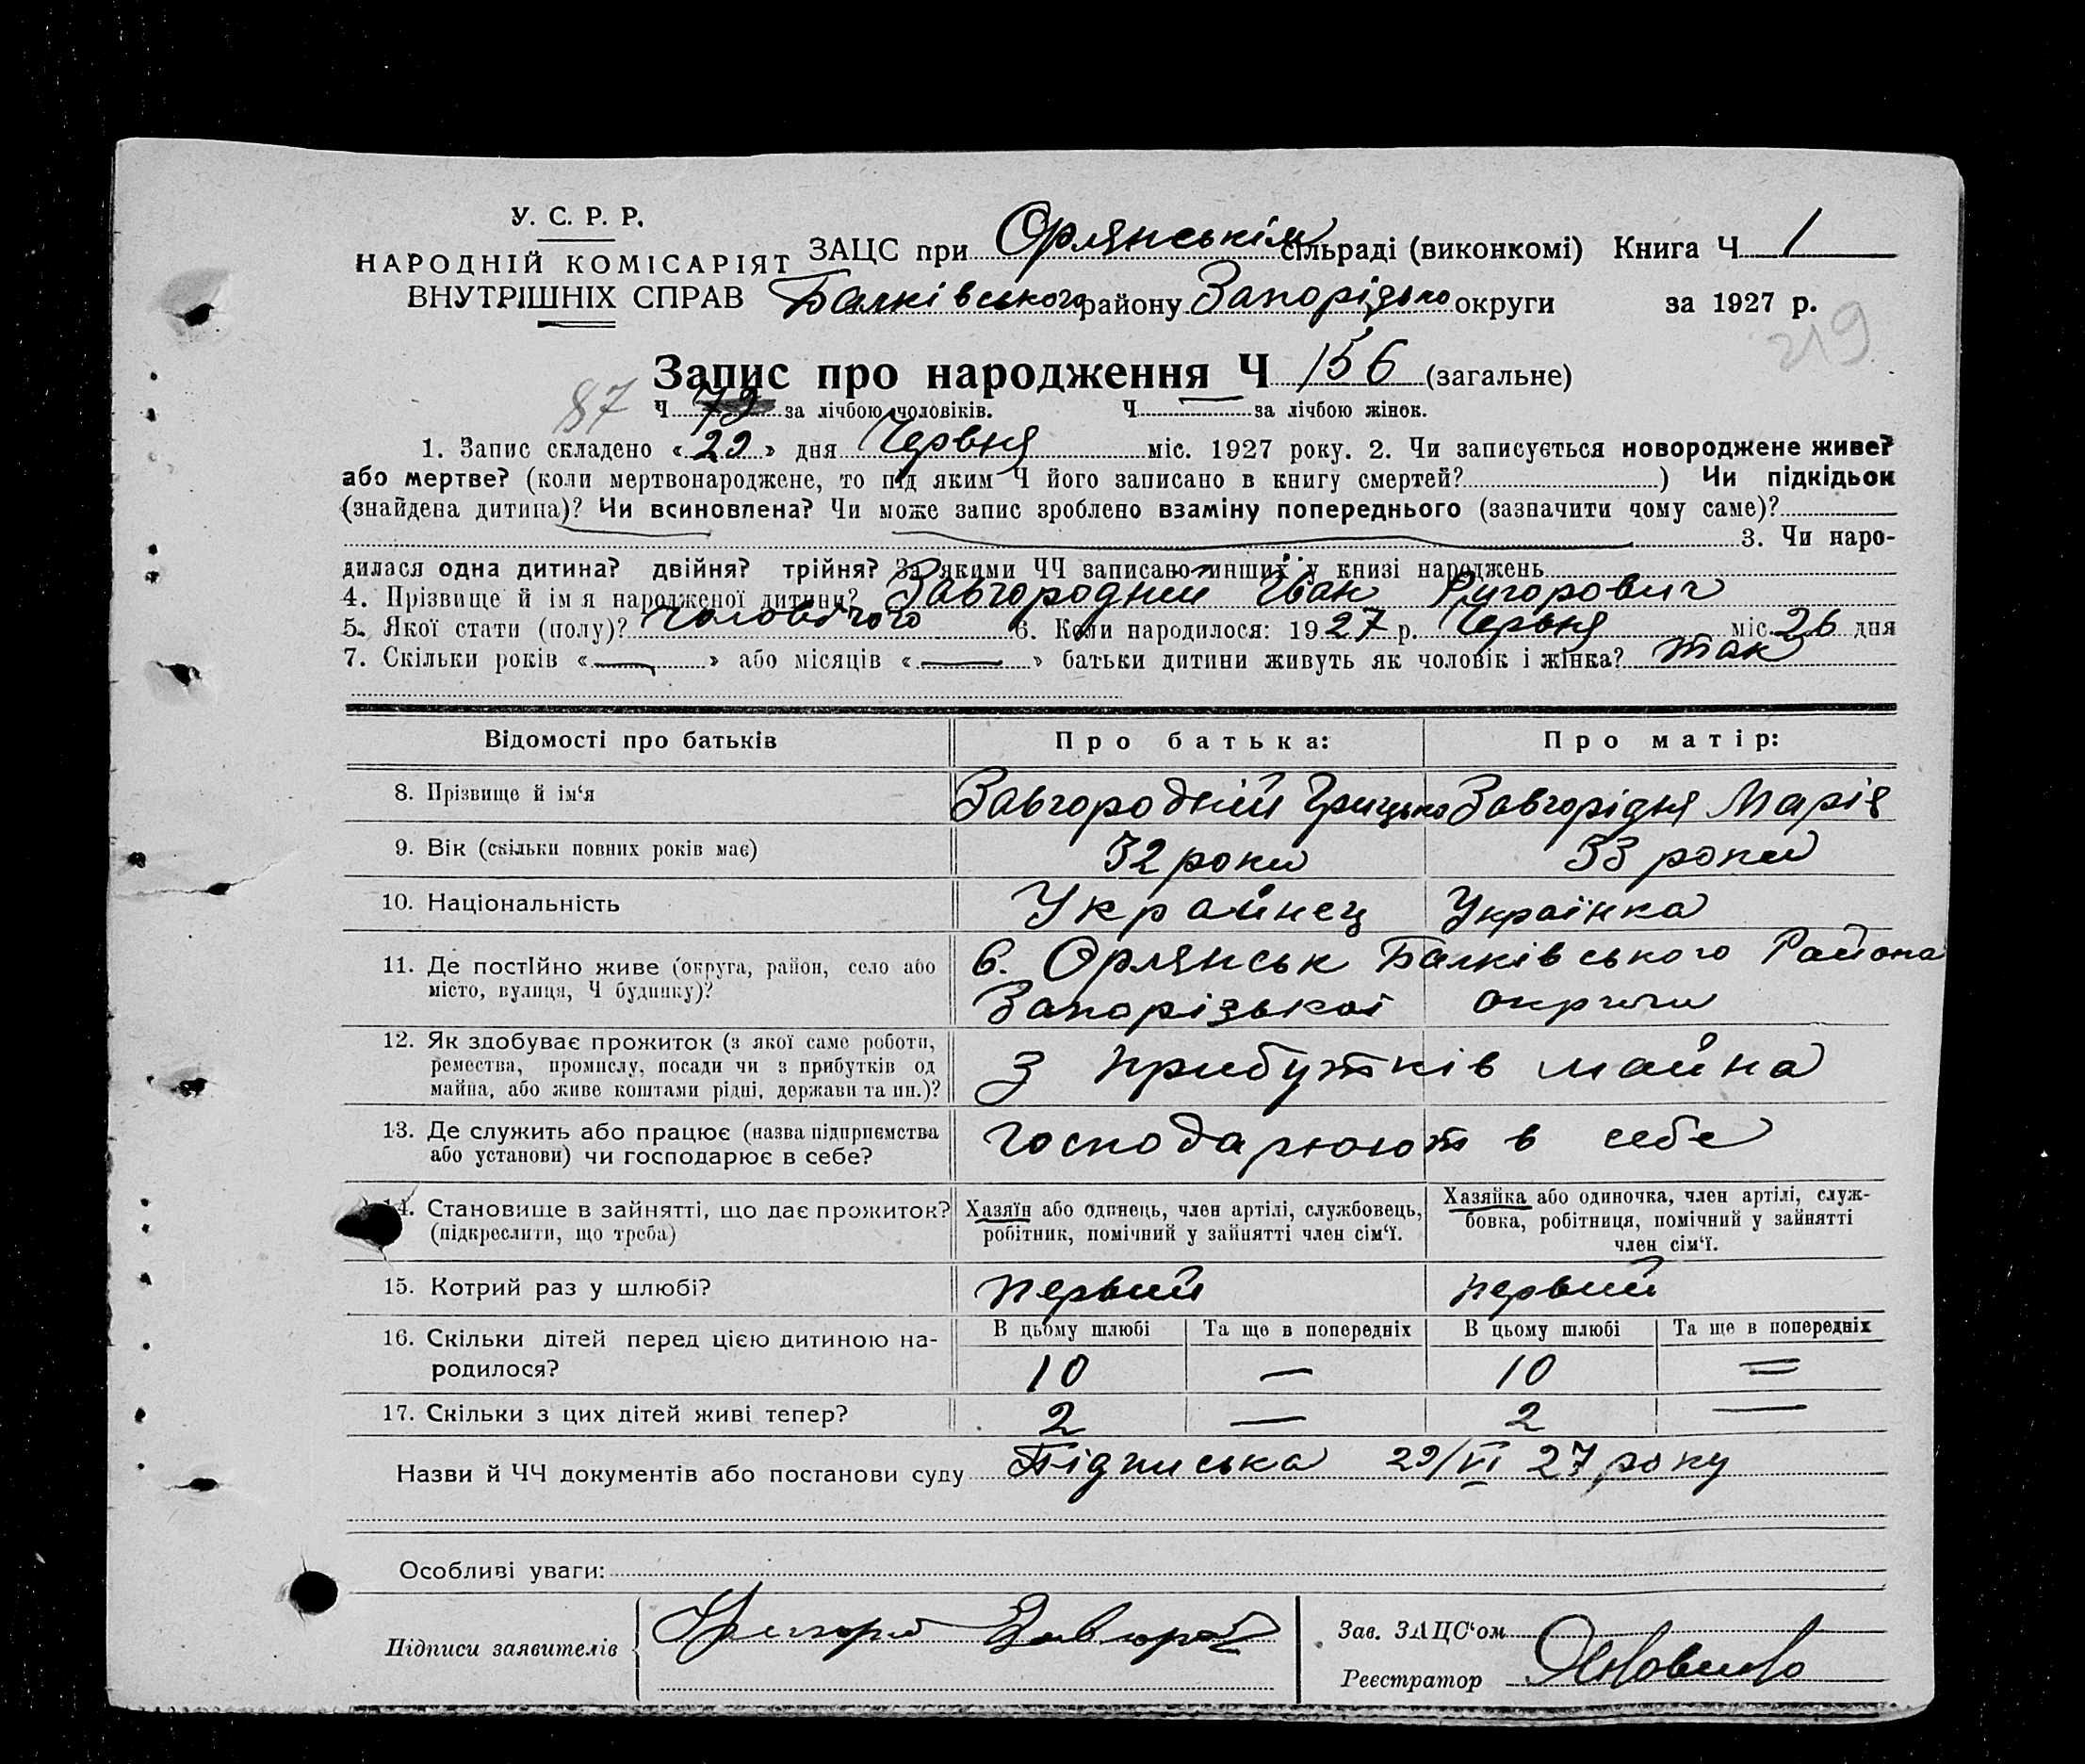 У. С. Р. Р.
НАРОДНІЙ КОМІСАРІЯТ
ВНУТРІШНІХ СПРАВ
ЗАЦС при Орлянськім сільраді (виконкомі) Книга Ч 1
Балківського району Запорізько округи за 1927 р.
219
Запис про народження Ч 156 (загальне)
87 Ч 79 за лічбою чоловіків. Ч за лічбою жінок.
1. Запис складено « 29 » дня Червня міс. 1927 року. 2. Чи записується новороджене живе?
або мертве? (коли мертвонароджене, то під яким Ч його записано в книгу смертей? ) Чи підкідьок
(знайдена дитина)? Чи всиновлена? Чи може запис зроблено взаміну попереднього (зазначити чому саме)?
3. Чи наро-
дилася одна дитина? двійня? трійня? За якими ЧЧ записано инших у книзі народжень
4. Прізвище й ім я народженої дитини? Завгородний Іван Григорович
5. Якої стати (полу)? чоловічого 6. Коли народилося: 1927 р. Червня міс. 26 дня
7. Скільки років « — » або місяців « — » батьки дитини живуть як чоловік і жінка? так
Відомості про батьків Про батька: Про матір:
8. Прізвище й ім‘я Завгородній Грицько Завгорідня Марія
9. Вік (скільки повних років має) 32 роки 33 роки
10. Національність Украйнец Українка
11. Де постійно живе (округа, район, село або
місто, вулиця, Ч будинку)?
с. Орлянськ Балківського Района
Запорізької округи
12. Як здобуває прожиток (з якої саме роботи,
ремества, промислу, посади чи з прибутків од
майна, або живе коштами рідні, держави та ин.)?
з прибутків майна
13. Де служить або працює (назва підприємства
або установи) чи господарює в себе?
господарюют в себе
14. Становище в зайнятті, що дає прожиток?
(підкреслити, що треба)
Хазяїн або одинець, член артілі, службовець,
робітник, помічний у зайнятті член сім‘ї.
Хазяйка або одиночка, член артілі, служ-
бовка, робітниця, помічний у зайнятті
член сім‘ї.
15. Котрий раз у шлюбі? первий первий
16. Скільки дітей перед цією дитиною на-
родилося?
В цьому шлюбі Та ще в попередніх В цьому шлюбі Та ще в попередніх
10 — 10 =
17. Скільки з цих дітей живі тепер? 2 — 2 —
Назви й ЧЧ документів або постанови суду Підписька 29/VI 27 року
Особливі уваги:
Підписи заявителів
Зав. ЗАЦС‘ом
Реєстратор